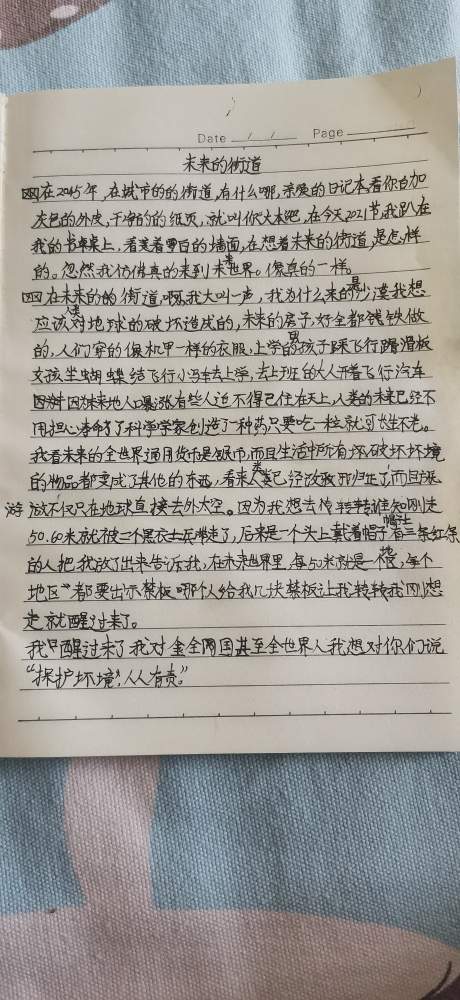 Date / / Page
未来的街道
在2045年,在城市的的街道,有什么哪,亲爱的日记本,看你白加
灰色的外皮,干净的的纸页,就叫你大本吧,在今天2021节,我趴在
我的书桌上,看着雪白的墙面,在想着未来的街道,是怎样
的。忽然我仿佛真的来到未来世界。像真的一样。
在未来的的街道,啊,我大叫一声,我为什么来的是沙漠我想
应该是人对地球的破坏造成的,未来的房子,好全都钱铁做
的,人们穿的像机甲一样的衣服,上学的男孩子踩飞行踏滑板
女孩坐蝴蝶结飞行小车去上学,去上班的大人开着飞行汽车
因为未来地人口暴涨有些人迫不得已住在天上,人类的未来已经不
用担心寿命了科学学家创造了一种药只要吃一粒就可长生不老。
我看未来的全世界通用货币是银币,而且生活中所有坏破坏环境
的物品都变成了其他的东西,看来人类已经改邪归正了,而且旅
游 放不仅只在地球直接去外太空。因为我想去传转转谁知刚走
50.60米就被二个黑衣士兵带走了,后来是一个头上戴着帽子帽上有三条红条
的人把我放了出来告诉我,在未来世界里,每50米就是一个地区,每个
地区都要出示禁板哪个人给我几块禁板让我转转我刚想
走就醒过来了。
我醒过来了我对全全网国甚至全世界人我想对你们说
“保护环境”,人人有责。”